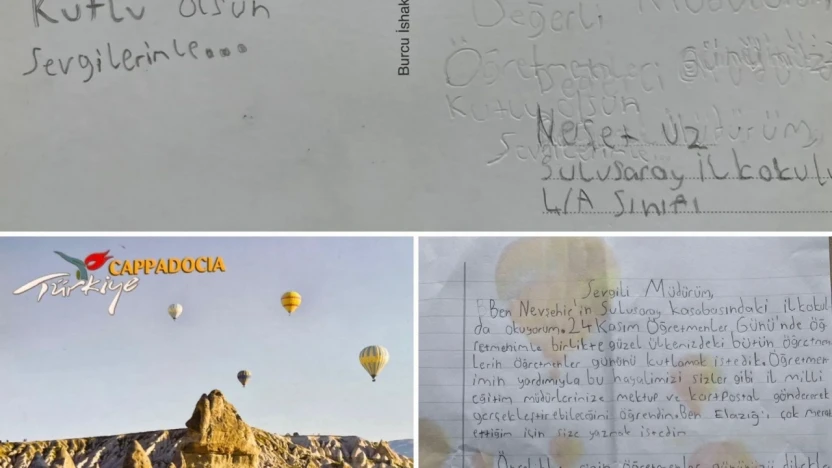 Kutlu olsun
Sevgilerinle...
Burcu İshak
Değerli Müdürüm
Öğretmenler Gününüz
Kutlu olsun
Sevgilerinle...
Neşet uz
Sulusaray İlkokulu
4/A Sınıfı
Türkiye
CAPPADOCIA
Sevgili Müdürüm,
Ben Nevşehir'in Sulusaray kasabasındaki ilkokul
da okuyorum. 24 Kasım Öğretmenler Günü'nde öğ
retmenimle birlikte güzel ülkemizdeki bütün öğretmen
lerin öğretmenler gününü kutlamak istedik. Öğretmen
imin yardımıyla bu hayalimizi sizler gibi il milli
eğitim müdürlerimize mektup ve kartpostal göndererek
gerçekleştirebileceğini öğrendim. Ben Elazığ'ı çok merak
ettiğim için size yazmak istedim